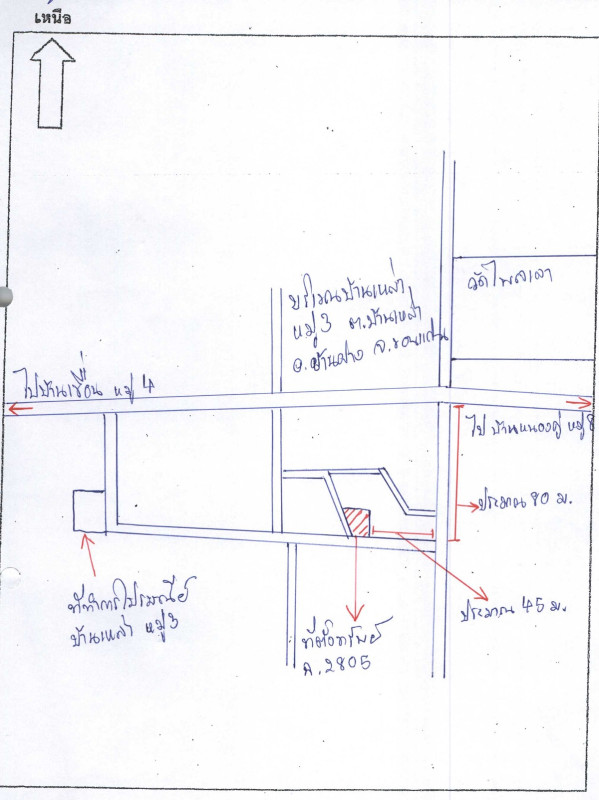 เหนือ
บริเวณบ้านเหล่า
หมู่ 3 ต.บ้านเหล่า
อ.บ้านฝาง จ.ขอนแก่น
วัดโพลเลา
ไปบ้านเขื่อน หมู่ 4
ไป บ้านหนองคู หมู่ 8
ประมาณ 80 ม.
ประมาณ 45 ม.
ที่ทำการไปรษณีย์
บ้านเหล่า หมู่ 3
ที่ตั้งทรัพย์
ฉ.2805